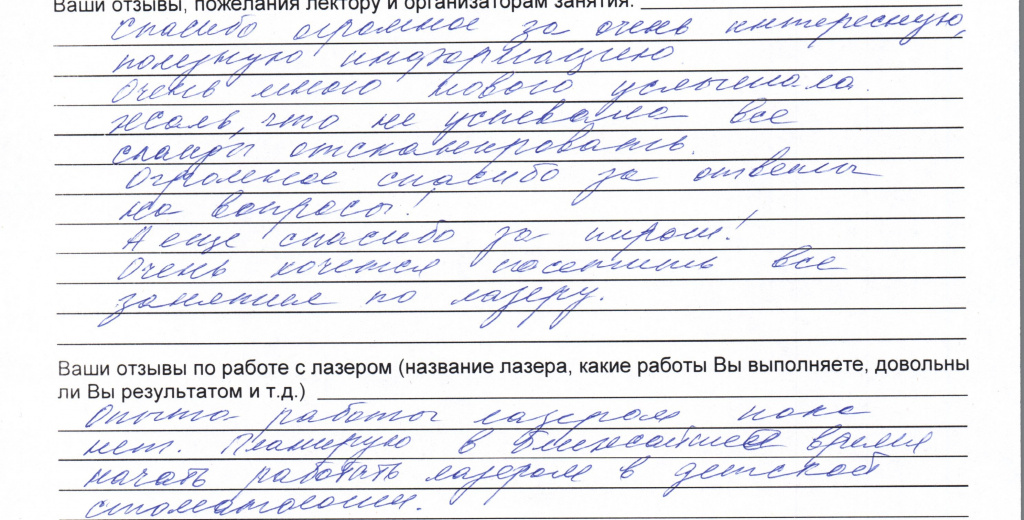 Ваши отзывы, пожелания лектору и организаторам занятия:
Спасибо огромное за очень интересную,
полезную информацию
Очень много нового услышала.
Жаль, что не успевала все
слайды отсканировать.
Огромное спасибо за ответы
на вопросы!
А еще спасибо за пироги!
Очень хочется посетить все
занятия по лазеру.
Ваши отзывы по работе с лазером (название лазера, какие работы Вы выполняете, довольны
ли Вы результатом и т.д.)
Опыта работы лазером пока
нет. Планирую в ближайшее время
начать работать лазером в детской
стоматологии.